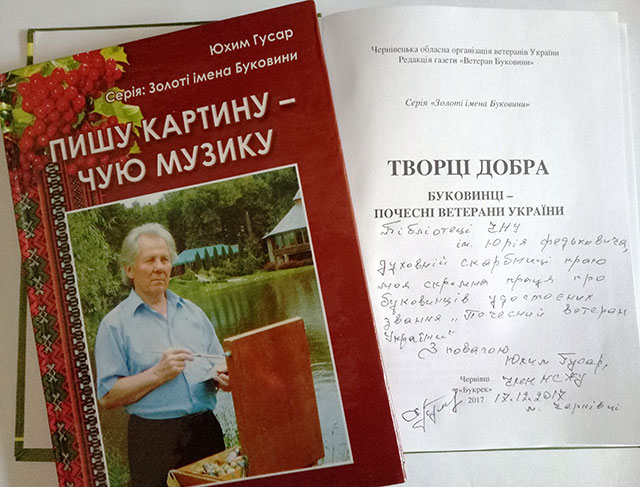 Юхим Гусар
Серія: Золоті імена Буковини
ПИШУ КАРТИНУ –
ЧУЮ МУЗИКУ
Чернівецька обласна організація ветеранів України
Редакція газети «Ветеран Буковини»
Серія «Золоті імена Буковини»
ТВОРЦІ ДОБРА
БУКОВИНЦІ –
ПОЧЕСНІ ВЕТЕРАНИ УКРАЇНИ
Бібліотеці ЧНУ
ім. Юрія Федьковича,
духовній скарбниці краю
моя скромна праця про
буковинців удостоєних
звання „Почесний ветеран
України"
З повагою
Юхим Гусар,
член НСЖУ
Чернівці
«Букрек»
2017
17.12.2017
м. Чернівці